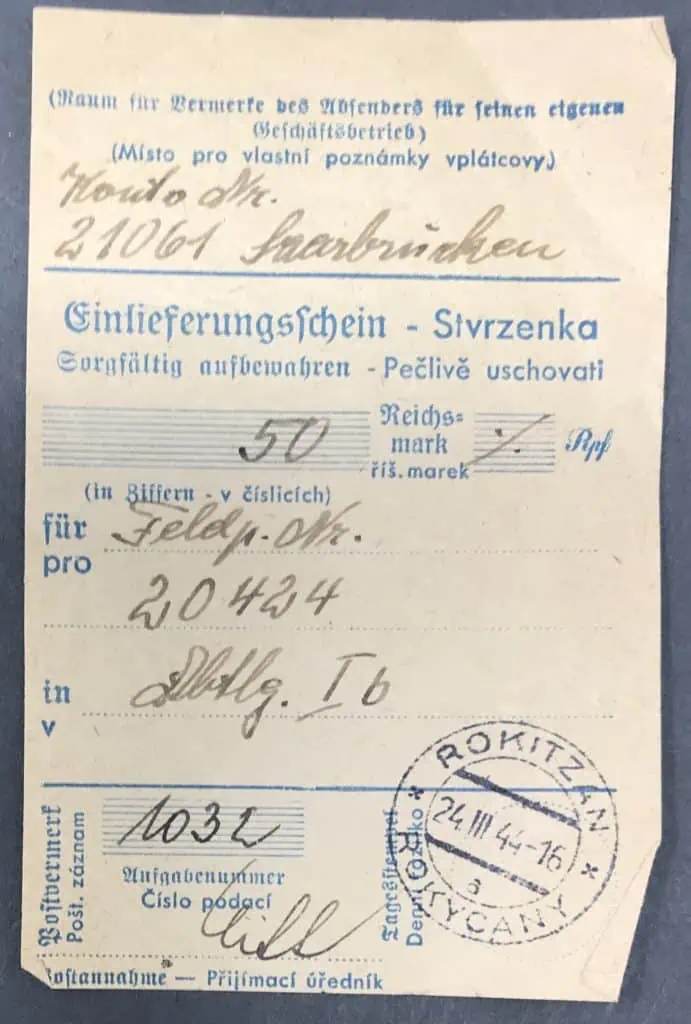 (Raum für Vermerke des Absenders für seinen eigenen
Geschäftsbetrieb)
(Místo pro vlastní poznámky vplátcovy.)
Konto Nr.
21061 Saarbrücken
Einlieferungsschein - Stvrzenka
Sorgfältig aufbewahren - Pečlivě uschovati
50 Reichs-
mark
říš. marek
·/. Rpf
(in Ziffern - v číslicích)
für Feldp. Nr.
pro
20424
in Abtlg. Ib
v
Postvermerk
Pošt. záznam
1032
Aufgabenummer
Číslo podací
Tagesstempel
Denní razítko
ROKITZAN
24.III.44-16
a
ROKYCANY
Postannahme — Přijímací úředník